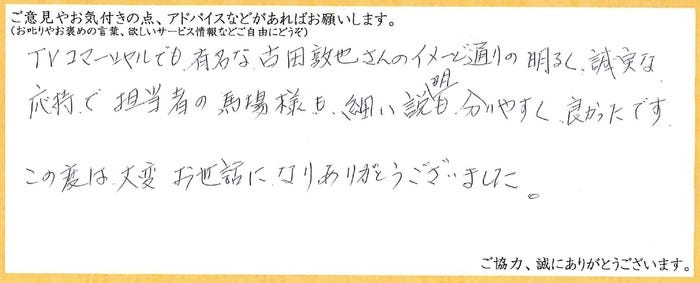 ご意見やお気付きの点、アドバイスなどがあればお願いします。
(お叱りやお褒めの言葉、欲しいサービス情報などご自由にどうぞ)
TVコマーシャルでも、有名な古田敦也さんのイメージ通りの明るく、誠実な
応待で担当者の馬場様も、細い説明も分りやすく、良かったです。
この度は、大変お世話になりありがとうございました。
ご協力、誠にありがとうございます。